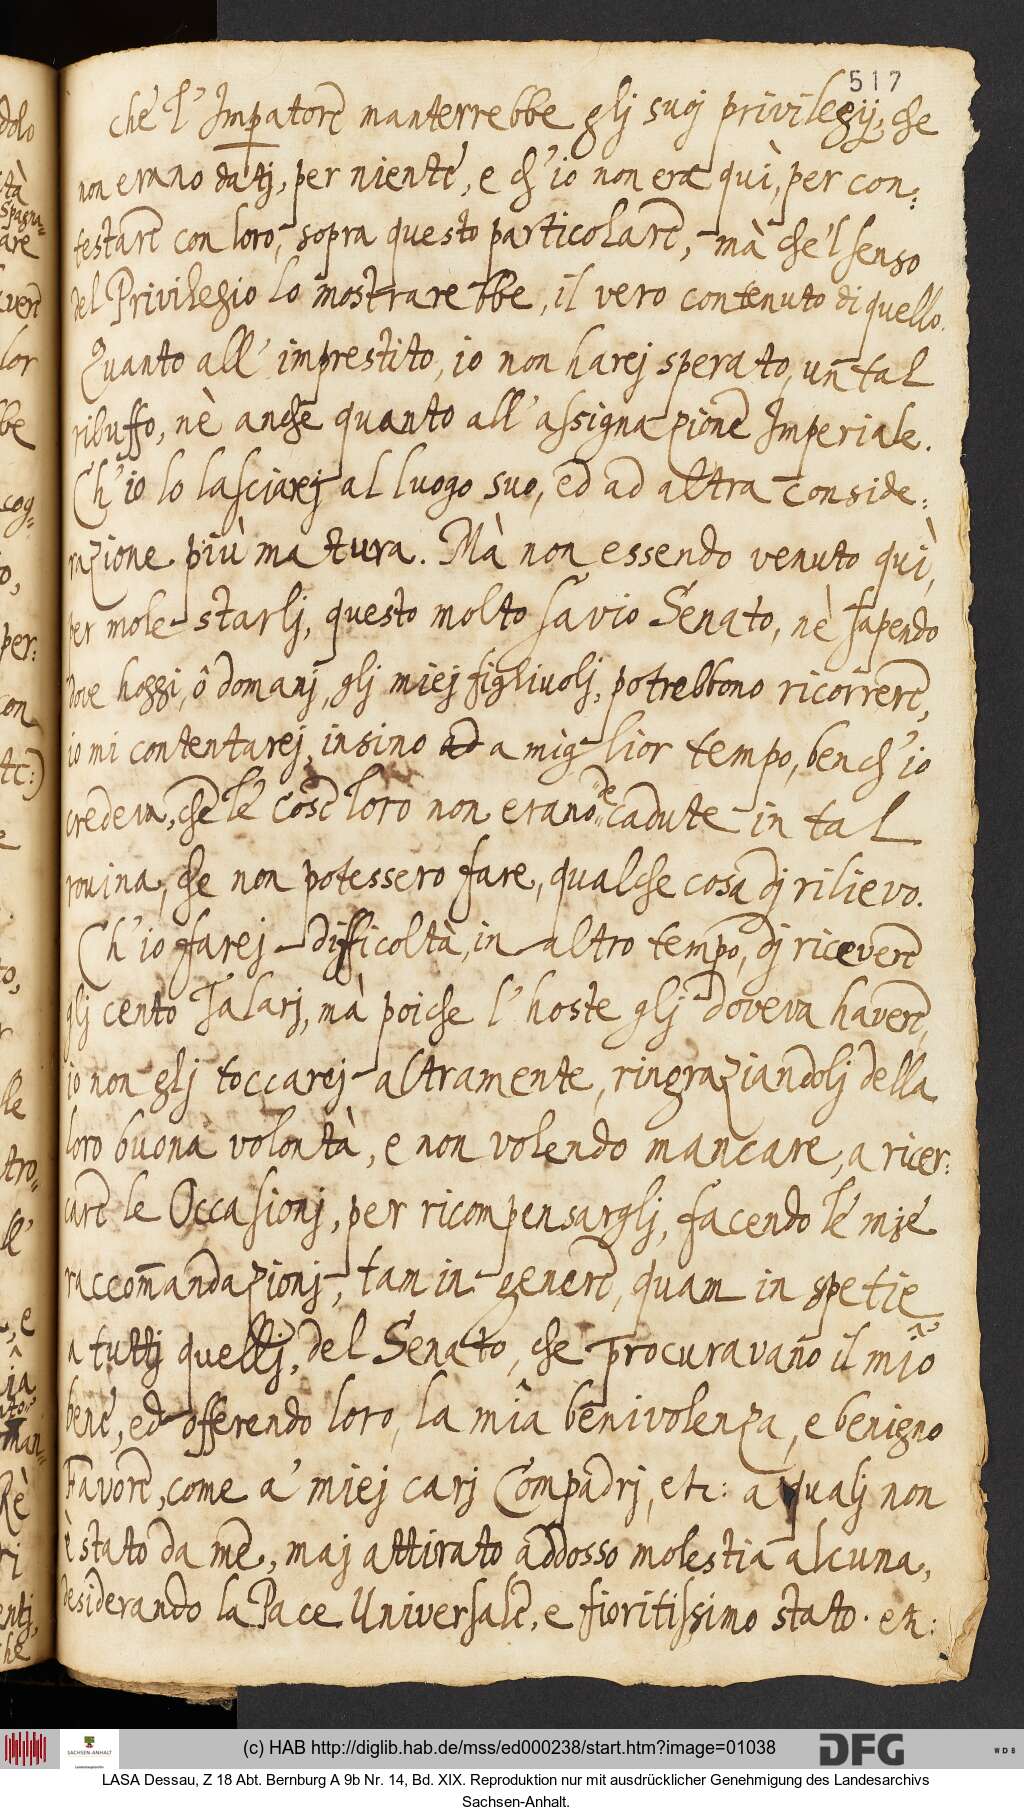 517
che l' Imperatore manterrebbe glj suoj privilegij, che
non erano datj, per niente, e ch'io non era quì, per con:
testare con loro, sopra questo particolare, mà che'l senso
del Privilegio lo mostrarebbe, il vero contenuto di quello.
Quanto all' imprestito, io non harej sperato, un tal
ribuffo, nè anche quanto all' assignazione Imperiale.
Ch'io lo lasciarej al luogo suo, ed ad altra conside:
razione più matura. Mà non essendo venuto quì,
per molestarlj, questo molto savio Senato, nè sapendo
dove hoggi, ô domanj, glj miej figliuolj, potrebbono ricorrere,
io mi contentarej, insino a miglior tempo, bench'io
credeva, che le cose loro non erano decadute in tal
rovina, che non potessero fare, qualche cosa dj rilievo.
Ch'io farej difficoltà, in altro tempo, dj ricevere
glj cento Talarj, mà poiche l' hoste glj doveva havere,
io non glj toccarej altramente, ringraziandolj della
loro buona volontà, e non volendo mancare, a ricer:
care le Occasionj, per ricompensarglj, facendo le mie
raccom̃andazionj, tam in genere, quam in spetie
a tuttj quellj, del Senato, che procuravano il mîo
bene, ed offerendo loro, la mîa benivolenza, e benigno
Favore, come a' miej carj Compadrj, etc: a qualj non
è stato da me, maj attirato addosso molestia alcuna,
desiderando la Pace Universale, e fioritissimo stato. etc:
(c) HAB http://diglib.hab.de/mss/ed000238/start.htm?image=01038
SACHSEN-ANHALT
DFG
WDB
LASA Dessau, Z 18 Abt. Bernburg A 9b Nr. 14, Bd. XIX. Reproduktion nur mit ausdrücklicher Genehmigung des Landesarchivs
Sachsen-Anhalt.